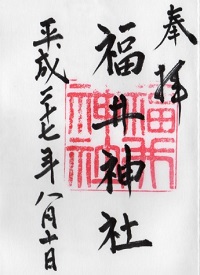 奉拝
福井神社
平成二十七年八月十日
福井神社